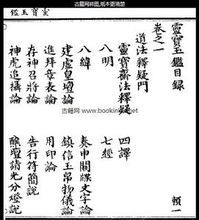 古籍网样图,纸本更清楚
靈寶玉鑑
靈寶玉鑑目錄
卷之一
道法釋疑門
靈寶齋法釋疑
八明
八緯
建虛皇壇論
進拜章表論
存神召將論
神虎追攝論
四譯
七經
奏申關牒文字論
鎮信玉帛物儀論
用印論
告行符簡說
醮壇請光分燈說
古籍网 www.bookinlife.net